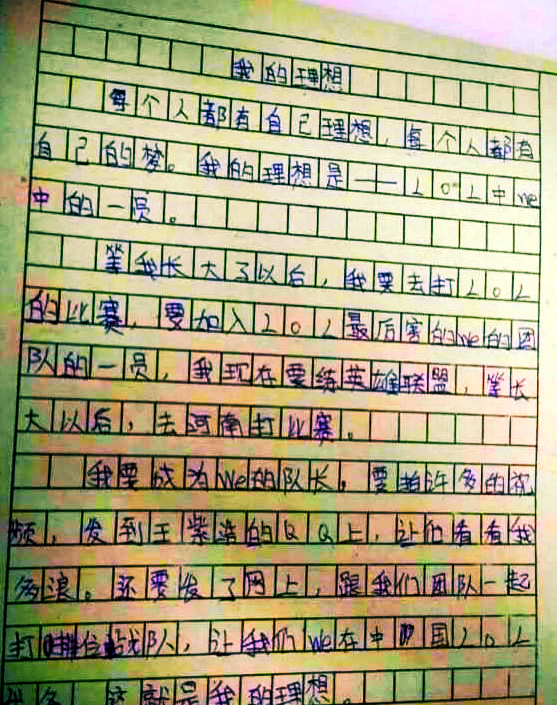 我的理想
每个人都有自己理想，每个人都有
自己的梦。我的理想是——LOL中we
中的一员。
等我长大了以后，我要去打LOL
的比赛，要加入LOL最厉害的we的团
队的一员，我现在要练英雄联盟，等长
大以后，去河南打比赛。
我要成为We的队长，要拍许多的视
频，发到王紫浩的QQ上，让他看看我
多浪。还要发了网上，跟我们团队一起
打排位战队，让我们We在中国LOL
出名，这就是我的理想。